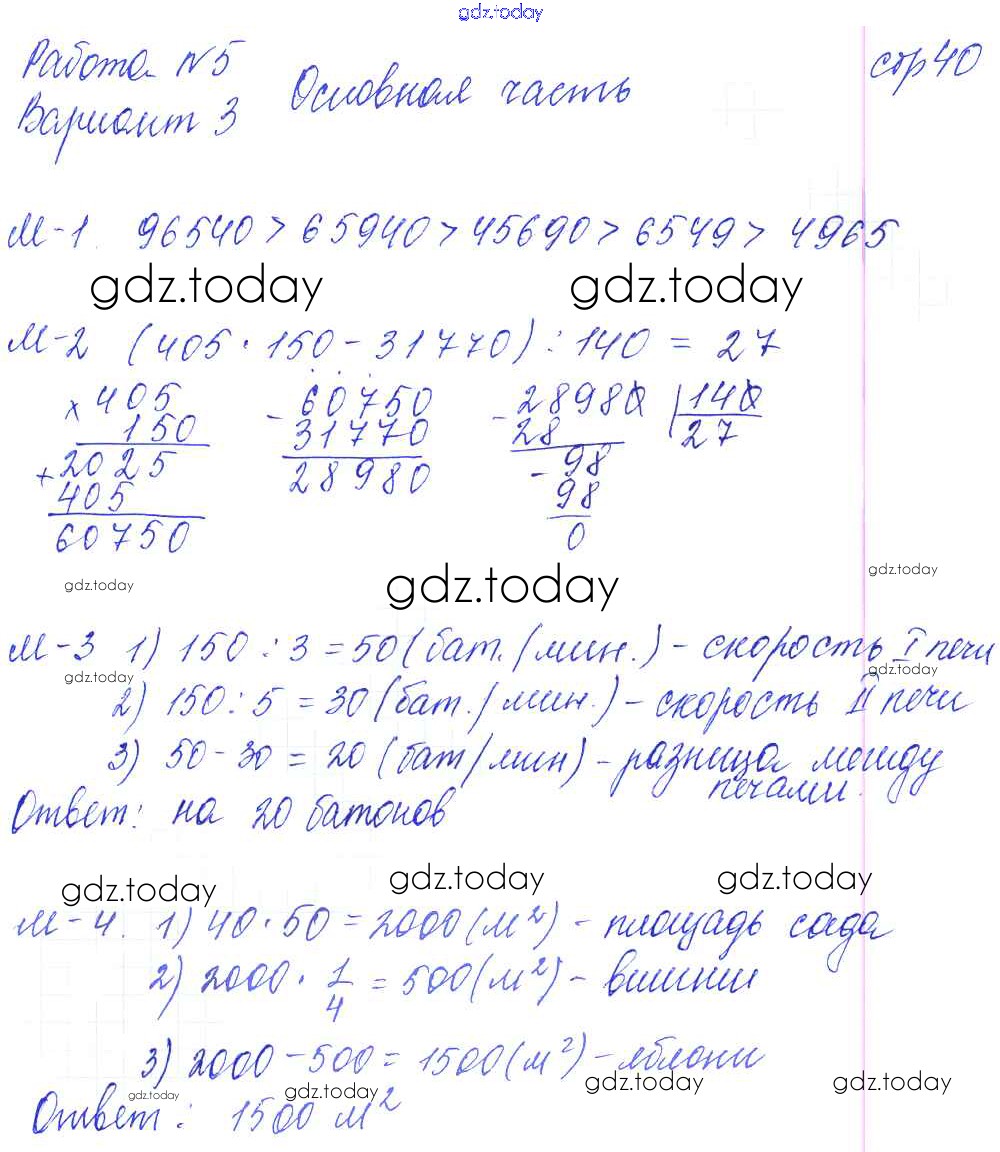 gdz.today
Работа №5
Вариант 3
Основная часть
стр 40
М-1. 96540 > 65940 > 45690 > 6549 > 4965
gdz.today gdz.today
М-2 (405 · 150 - 31770) : 140 = 27
× 405 - 60750 - 28980 | 140
150 31770 28 27
+ 2025 28980 - 98
405 98
60750 0
gdz.today gdz.today gdz.today
М-3 1) 150 : 3 = 50 (бат./мин.) - скорость I печи
gdz.today gdz.today
2) 150 : 5 = 30 (бат./мин.) - скорость II печи
3) 50 - 30 = 20 (бат/мин) - разница между
печами.
Ответ: на 20 батонов
gdz.today gdz.today gdz.today
М-4. 1) 40 · 50 = 2000 (м²) - площадь сада
2) 2000 · 1/4 = 500 (м²) - вишни
3) 2000 - 500 = 1500 (м²) - яблони
gdz.today gdz.today gdz.today gdz.today
Ответ: 1500 м²